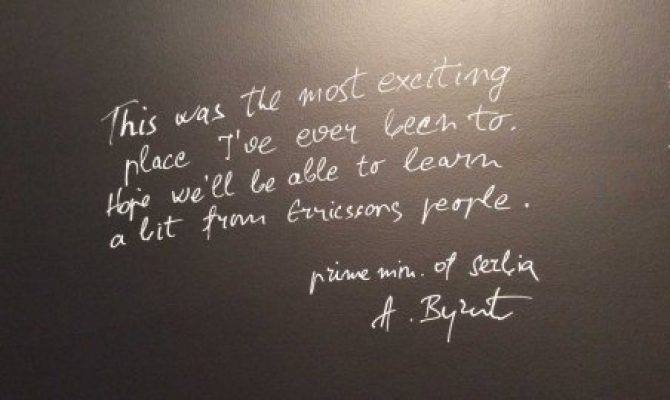 This was the most exciting
place I've ever been to.
Hope we'll be able to learn
a bit from Ericssons people.
prime min. of serbia
A.